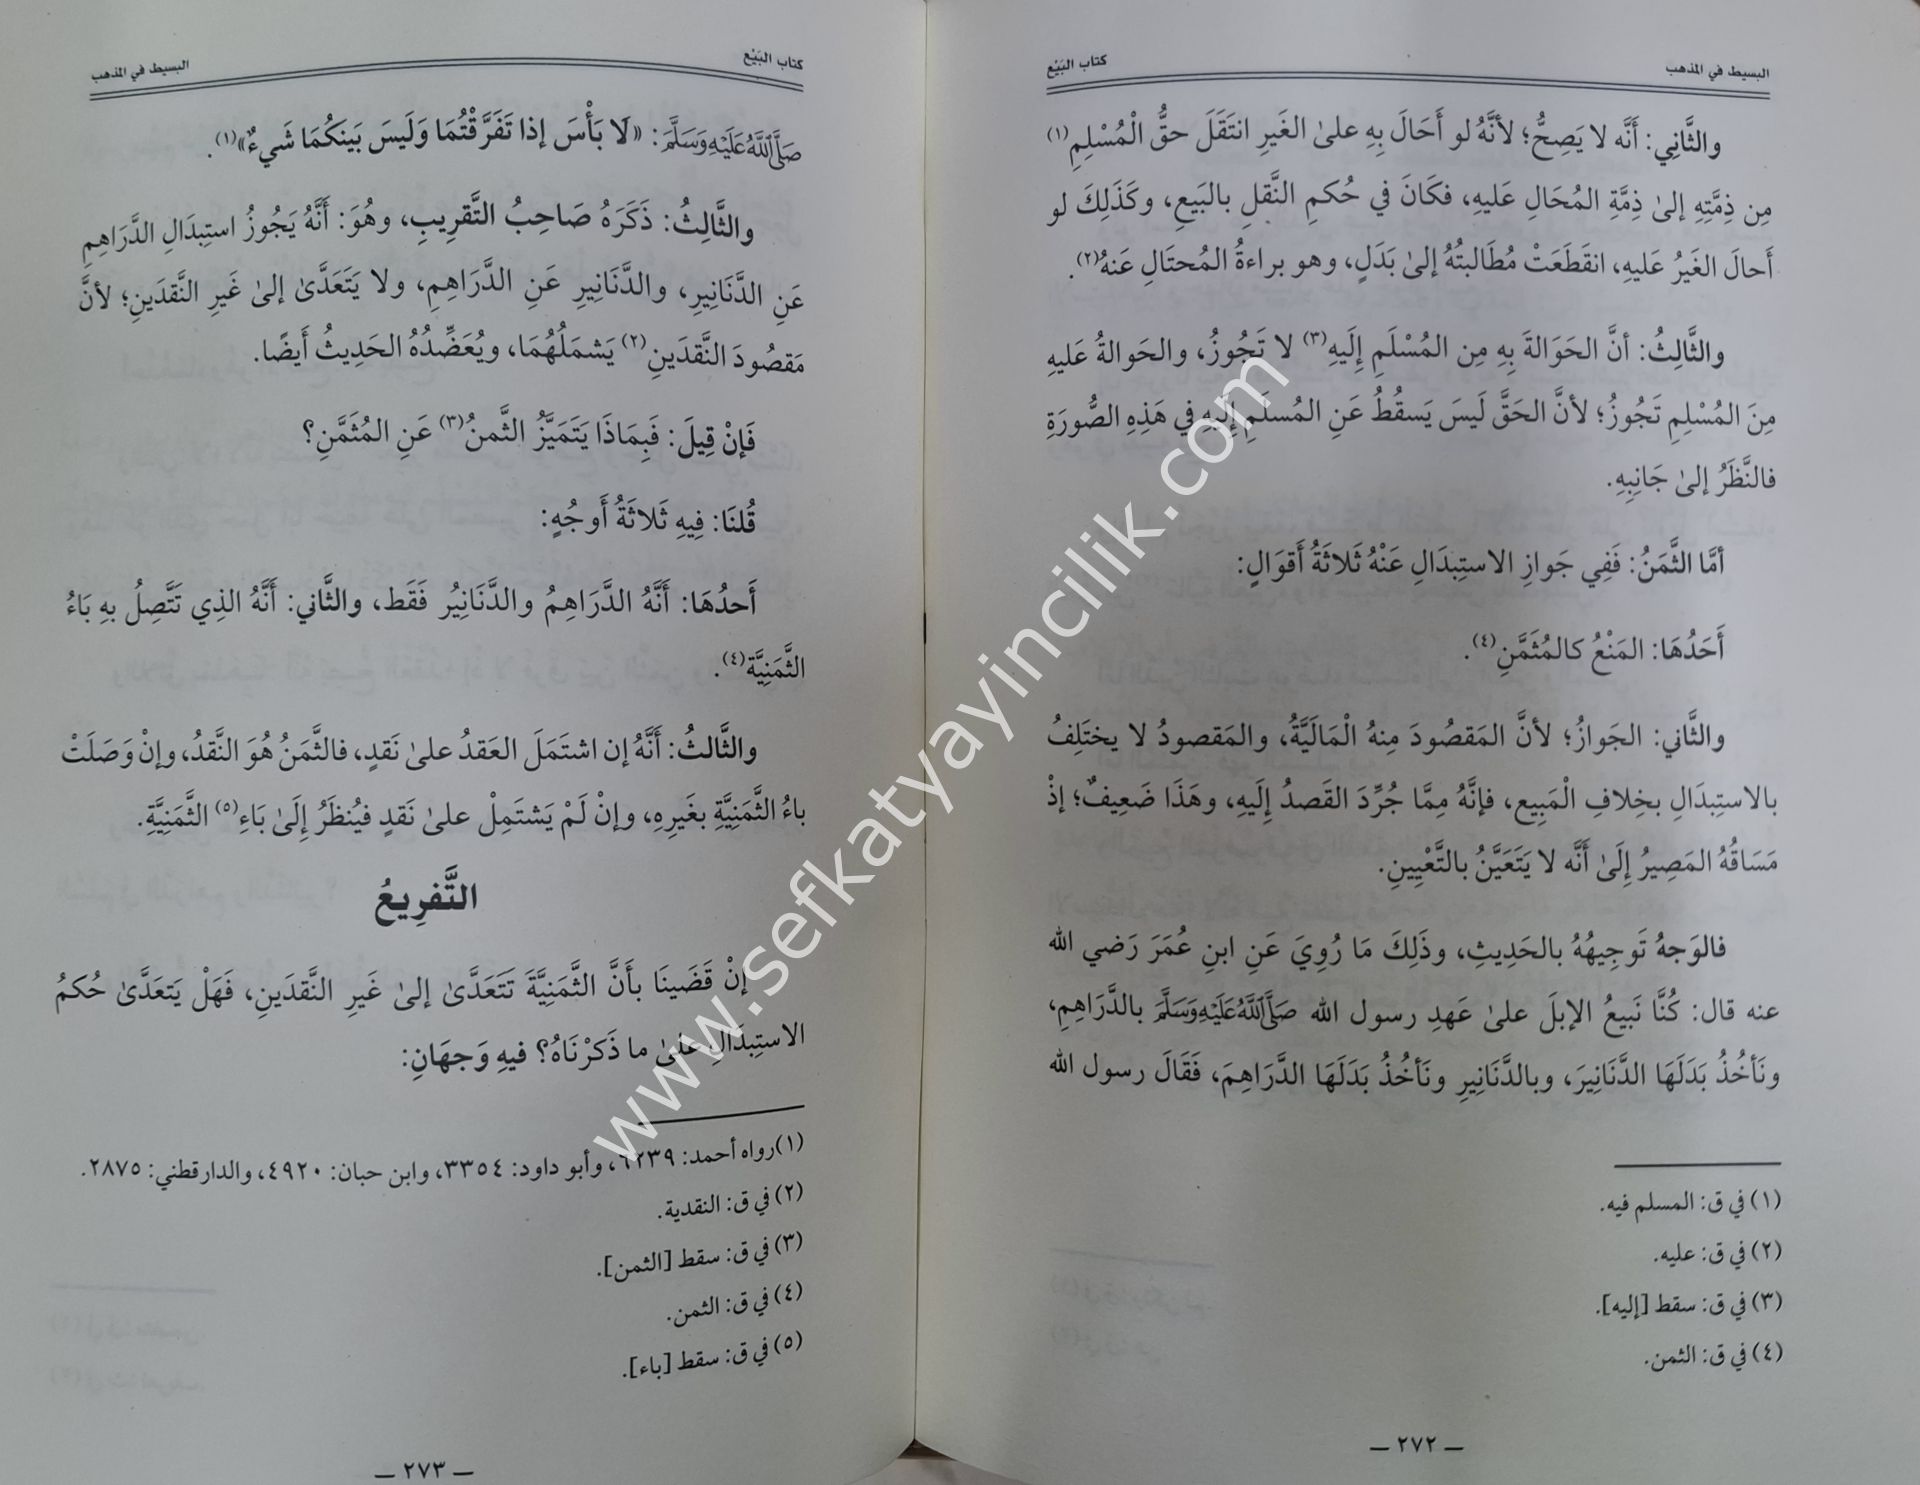 البسيط في المذهب
كتاب البَيْع
والثَّانِي: أَنَّه لا يَصِحُّ؛ لأنَّهُ لو أَحَالَ بِهِ علىٰ الغَيرِ انتَقَلَ حقُّ الْمُسْلِمِ (١)
مِن ذِمَّتِهِ إلىٰ ذِمَّةِ المُحَالِ عَليهِ، فكَانَ في حُكمِ النَّقلِ بالبَيعِ، وكَذَلِكَ لو
أَحالَ الغَيرُ عَليهِ، انقَطَعَتْ مُطَالبتُهُ إلىٰ بَدَلٍ، وهو براءةُ المُحتَالِ عَنهُ(٢).
والثَّالِثُ: أنَّ الحَوَالةَ بِهِ مِن المُسْلَمِ إِلَيهِ(٣) لا تَجُوزُ، والحَوالةُ عَليهِ
مِنَ المُسْلِمِ تَجُوزُ؛ لأنَّ الحَقَّ لَيسَ يَسقُطُ عَنِ المُسلَمِ إِليهِ في هَذِهِ الصُّورَةِ
فالنَّظَرُ إلىٰ جَانِبِهِ.
أمَّا الثَّمَنُ: فَفِي جَوازِ الاستِبدَالِ عَنْهُ ثَلاثَةُ أَقوَالٍ:
أَحَدُهَا: المَنْعُ كالمُثَمَّنِ(٤).
والثَّاني: الجَوازُ؛ لأنَّ المَقصُودَ مِنهُ الْمَالَيَّةُ، والمَقصودُ لا يختَلِفُ
بالاستِبدَالِ بخِلافِ المَبِيعِ، فإنَّهُ مِمَّا جُرِّدَ القَصدُ إِلَيهِ، وهَذَا ضَعِيفٌ؛ إذْ
مَسَاقُهُ المَصِيرُ إِلَىٰ أَنَّه لا يَتَعَيَّنُ بالتَّعْيِينِ.
فالوَجهُ تَوجِيهُهُ بالحَدِيثِ، وذَلِكَ مَا رُوِيَ عَنِ ابنِ عُمَرَ رَضي الله
عنه قال: كُنَّا نَبيعُ الإبلَ علىٰ عَهدِ رسول الله صَلَّى اللَّهُ عَلَيْهِ وَسَلَّمَ بالدَّرَاهِمِ،
ونَأخُذُ بَدَلَهَا الدَّنَانِيرَ، وبالدَّنَانِيرِ ونَأخُذُ بَدَلَهَا الدَّرَاهِمَ، فَقَالَ رسول الله
(١) في ق: المسلم فيه.
(٢) في ق: عليه.
(٣) في ق: سقط [إليه].
(٤) في ق: الثمن.
— ٢٧٢ —
كتاب البَيْع
البسيط في المذهب
صَلَّى اللَّهُ عَلَيْهِ وَسَلَّمَ: «لَا بَأْسَ إذَا تَفَرَّقْتُمَا وَلَيسَ بَينَكُمَا شَيءٌ»(١).
والثَّالِثُ: ذَكَرَهُ صَاحِبُ التَّقرِيبِ، وهُوَ: أَنَّهُ يَجُوزُ استِبدَالُ الدَّرَاهِمِ
عَنِ الدَّنَانِيرِ، والدَّنَانِيرِ عَنِ الدَّرَاهِمِ، ولا يَتَعَدَّىٰ إلىٰ غَيرِ النَّقدَينِ؛ لأنَّ
مَقصُودَ النَّقدَينِ(٢) يَشمَلُهُمَا، ويُعَضِّدُهُ الحَدِيثُ أَيضًا.
فَإنْ قِيلَ: فَبِمَاذَا يَتَميَّزُ الثَّمنُ(٣) عَنِ المُثمَّنِ؟
قُلنَا: فِيهِ ثَلاثَةُ أَوجُهٍ:
أَحدُهَا: أَنَّهُ الدَّرَاهِمُ والدَّنَانِيرُ فَقَط، والثَّاني: أَنَّهُ الذِي تَتَّصِلُ بهِ بَاءُ
الثَّمَنِيَّة(٤).
والثَّالثُ: أَنَّهُ إن اشتَمَلَ العَقدُ علىٰ نَقدٍ، فالثَّمَنُ هُوَ النَّقدُ، وإنْ وَصَلَتْ
باءُ الثَّمَنِيَّةِ بغَيرِهِ، وإنْ لَمْ يَشتَمِلْ علىٰ نَقدٍ فيُنظَرُ إِلَىٰ بَاءِ(٥) الثَّمَنِيَّةِ.
التَّفرِيعُ
إنْ قَضَينَا بأَنَّ الثَّمَنِيَّةَ تَتَعَدَّىٰ إلىٰ غَيرِ النَّقدَينِ، فَهَلْ يَتعَدَّىٰ حُكمُ
الاستِبدَالِ علىٰ ما ذَكَرْنَاهُ؟ فيهِ وَجهَانِ:
(١)رواه أحمد: ٦٢٣٩، وأبو داود: ٣٣٥٤، وابن حبان: ٤٩٢٠، والدارقطني: ٢٨٧٥.
(٢) في ق: النقدية.
(٣) في ق: سقط [الثمن].
(٤) في ق: الثمن.
(٥) في ق: سقط [باء].
— ٢٧٣ —
www.sefkatyayincilik.com